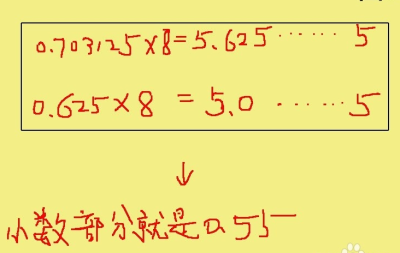 0.703125×8=5.625……5
0.625×8=5.0……5
↓
小数部分就是0.55